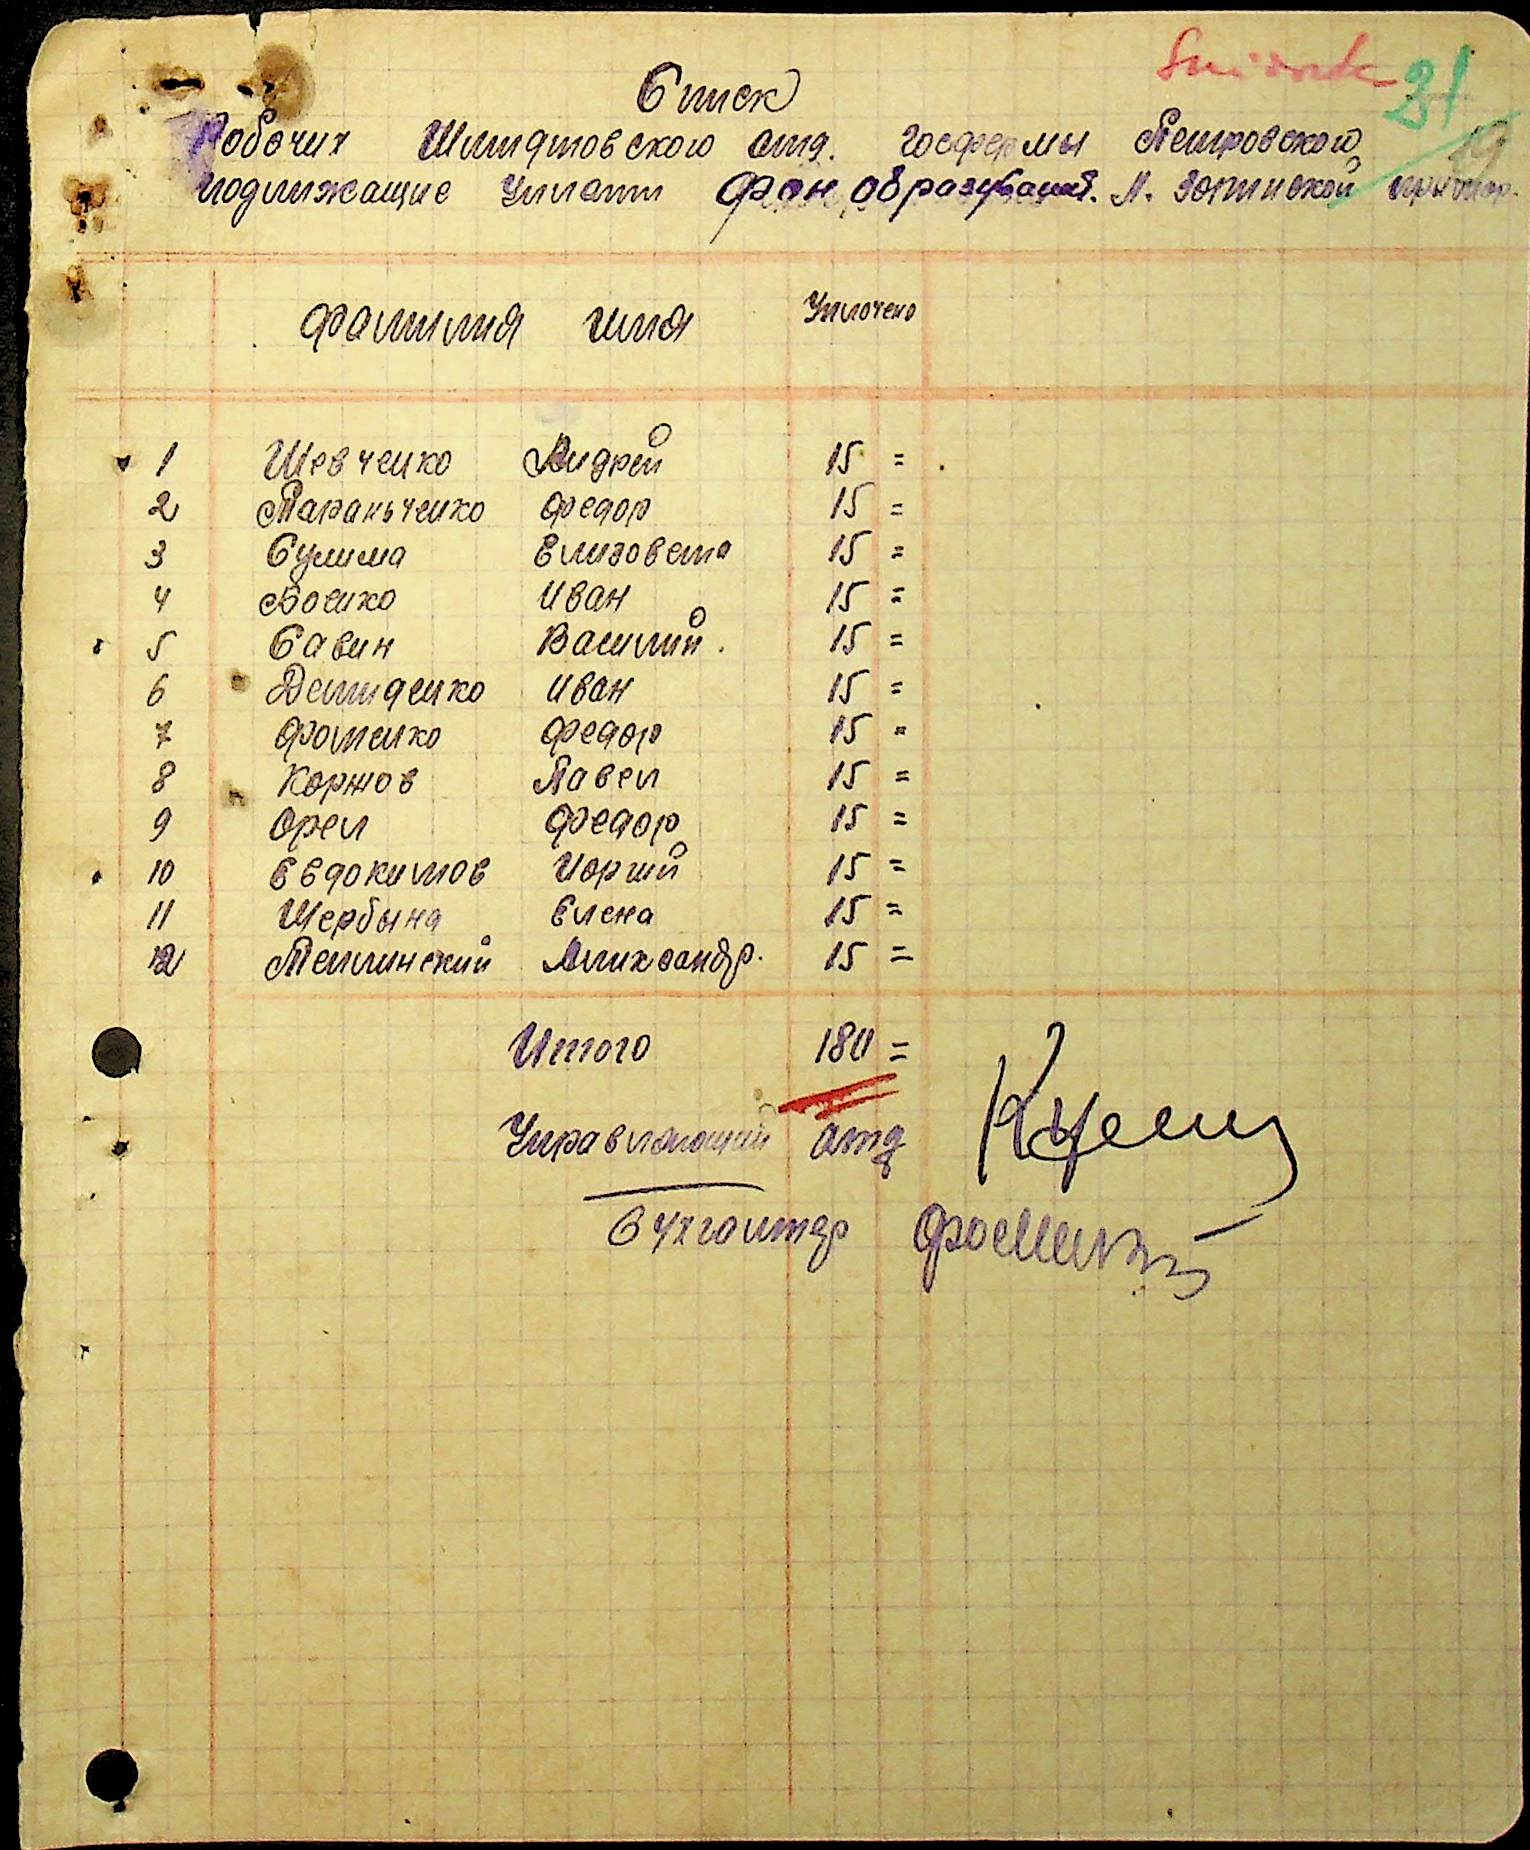 31
Список
Рабочих Шмидтовского отд. госфермы Петровского
подлижащие Уплати фон. образувания. М.
фамилия имя Уплочено
1 Шевченко Андрей 15 =
2 Тараньченко Федор 15 =
3 Сулима Елизовета 15 =
4 Боенко Иван 15 =
5 Савин Василий. 15 =
6 Демиденко Иван 15 =
7 Фоменко Федор 15 =
8 Коржов Павел 15 =
9 Орел Федор 15 =
10 Евдокимов Иоргий 15 =
11 Щербына Елена 15 =
12 Темлинский Алихсандр. 15 =
Итого 180 =
Управляющий отд
Бухгалтер